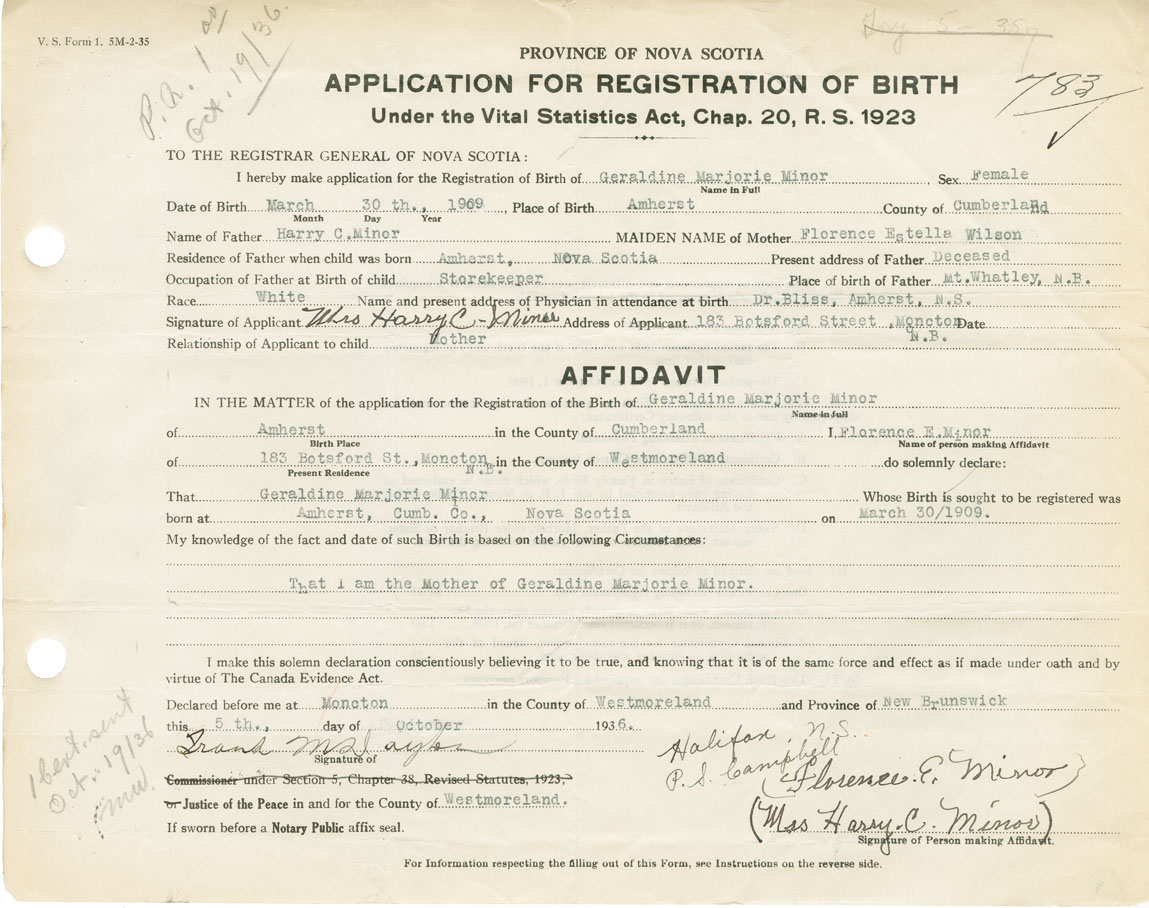 V. S. Form 1. 5M-2-35
P.N. 1
Oct. 19/36
783
PROVINCE OF NOVA SCOTIA
APPLICATION FOR REGISTRATION OF BIRTH
Under the Vital Statistics Act, Chap. 20, R. S. 1923
TO THE REGISTRAR GENERAL OF NOVA SCOTIA:
I hereby make application for the Registration of Birth of Geraldine Marjorie Minor, Sex Female
Name in Full
Date of Birth March 30 th., 1909, Place of Birth Amherst County of Cumberland
Month Day Year
Name of Father Harry C.Minor MAIDEN NAME of Mother Florence Estella Wilson
Residence of Father when child was born Amherst, Nova Scotia Present address of Father Deceased
Occupation of Father at Birth of child Storekeeper Place of birth of Father Mt.Whatley, N.B.
Race White Name and present address of Physician in attendance at birth Dr.Bliss, Amherst, N.S.
Signature of Applicant Mrs Harry C - Minor Address of Applicant 183 Botsford Street ,Moncton Date
N.B.
Relationship of Applicant to child Mother
AFFIDAVIT
IN THE MATTER of the application for the Registration of the Birth of Geraldine Marjorie Minor
Name in full
of Amherst in the County of Cumberland I, Florence E.Minor
Birth Place Name of person making Affidavit
of 183 Botsford St.,Moncton N.B. in the County of Westmoreland do solemnly declare:
Present Residence
That Geraldine Marjorie Minor Whose Birth is sought to be registered was
born at Amherst, Cumb. Co., Nova Scotia on March 30/1909.
My knowledge of the fact and date of such Birth is based on the following Circumstances:
That i am the Mother of Geraldine Marjorie Minor.
I make this solemn declaration conscientiously believing it to be true, and knowing that it is of the same force and effect as if made under oath and by
virtue of The Canada Evidence Act.
Declared before me at Moncton in the County of Westmoreland and Province of New Brunswick
this 5 th., day of October 1936.
Frank
Signature of
Halifax, N.S.
P.S. Campbell
(Florence. E. Minor)
Commissioner under Section 5, Chapter 38, Revised Statutes, 1923,
or Justice of the Peace in and for the County of Westmoreland.
(Mrs Harry. C. Minor)
If sworn before a Notary Public affix seal.
Signature of Person making Affidavit.
1 cert. sent
Oct. 19/36
MW.
For Information respecting the filling out of this Form, see Instructions on the reverse side.